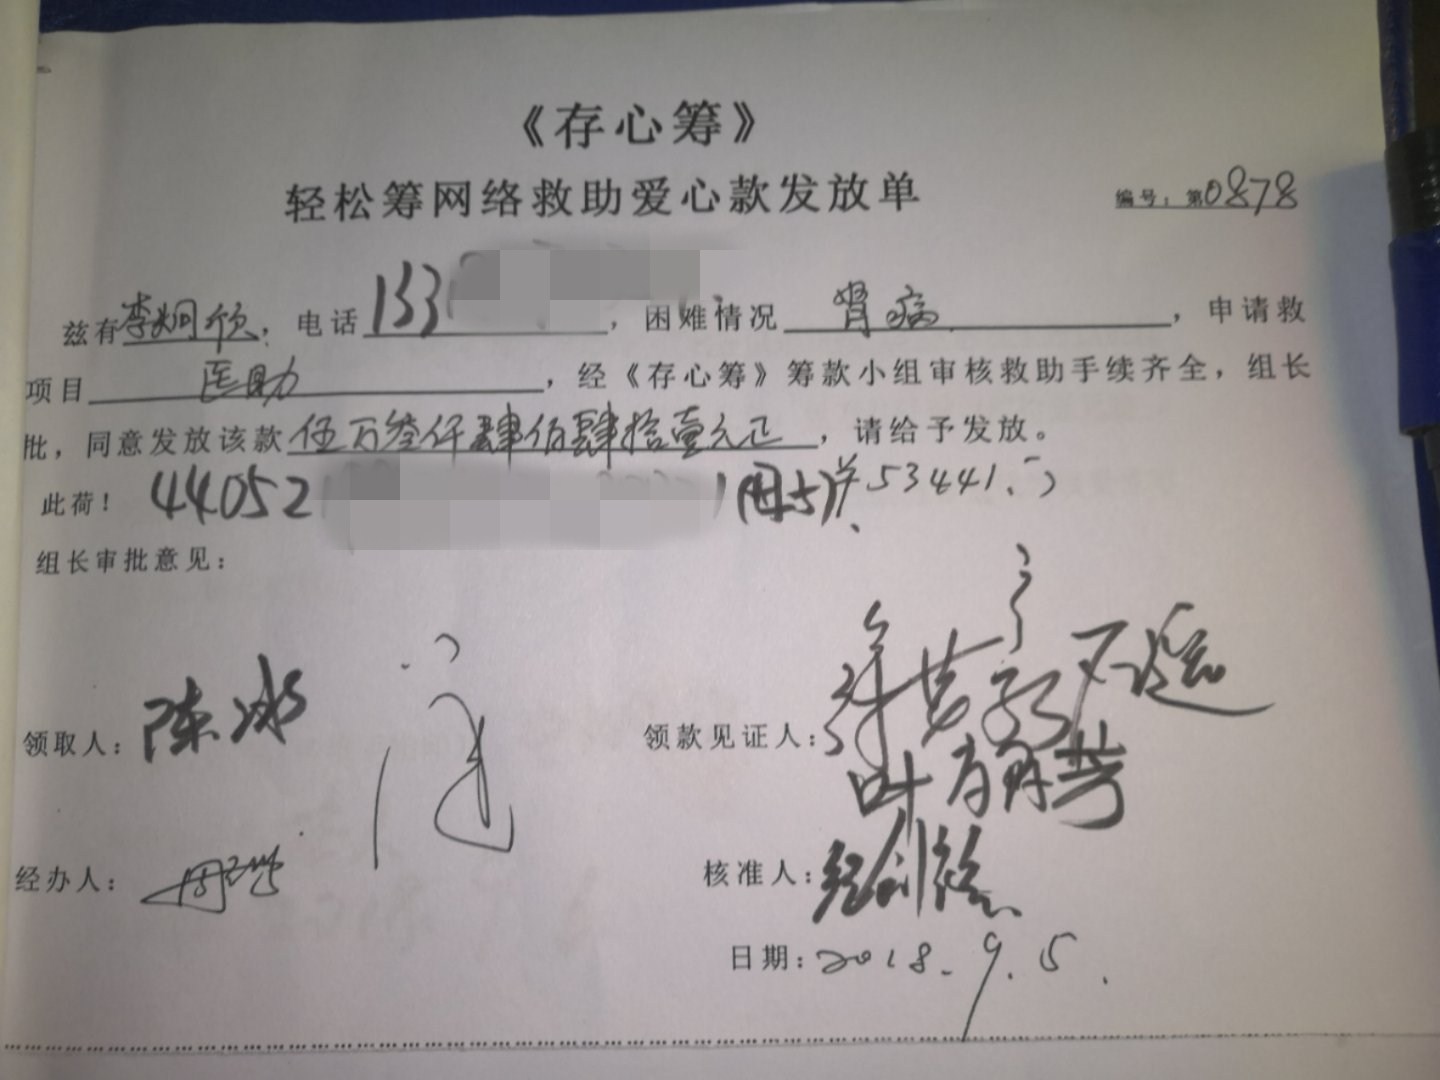 《存心筹》
轻松筹网络救助爱心款发放单
编号：第0878
兹有李炯欣，电话133，困难情况肾病，申请救
项目医助，经《存心筹》筹款小组审核救助手续齐全，组长
批，同意发放该款伍万叁仟肆佰肆拾壹元正，请给予发放。
此荷！ 44052 53441.
组长审批意见：
领取人：陈冰 领款见证人：
叶
经办人：周 核准人：
日期：2018.9.5.